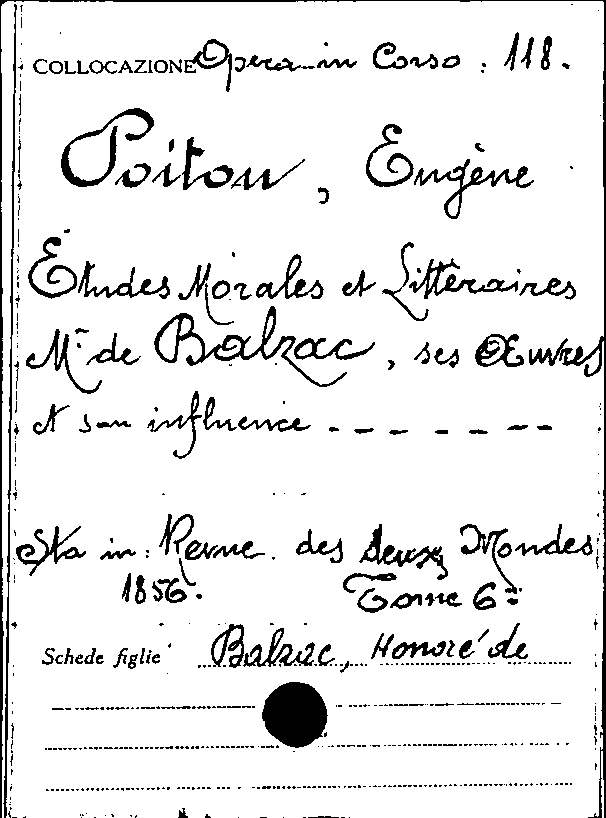 COLLOCAZIONE Opera in Corso : 118.
Poitou, Eugène
Études Morales et Littéraires
Mr de Balzac, ses Œuvres
et son influence - - - - - - -
Sta in: Revue des deux Mondes
1856. Tome 6º
Schede figlie Balzac, Honoré de